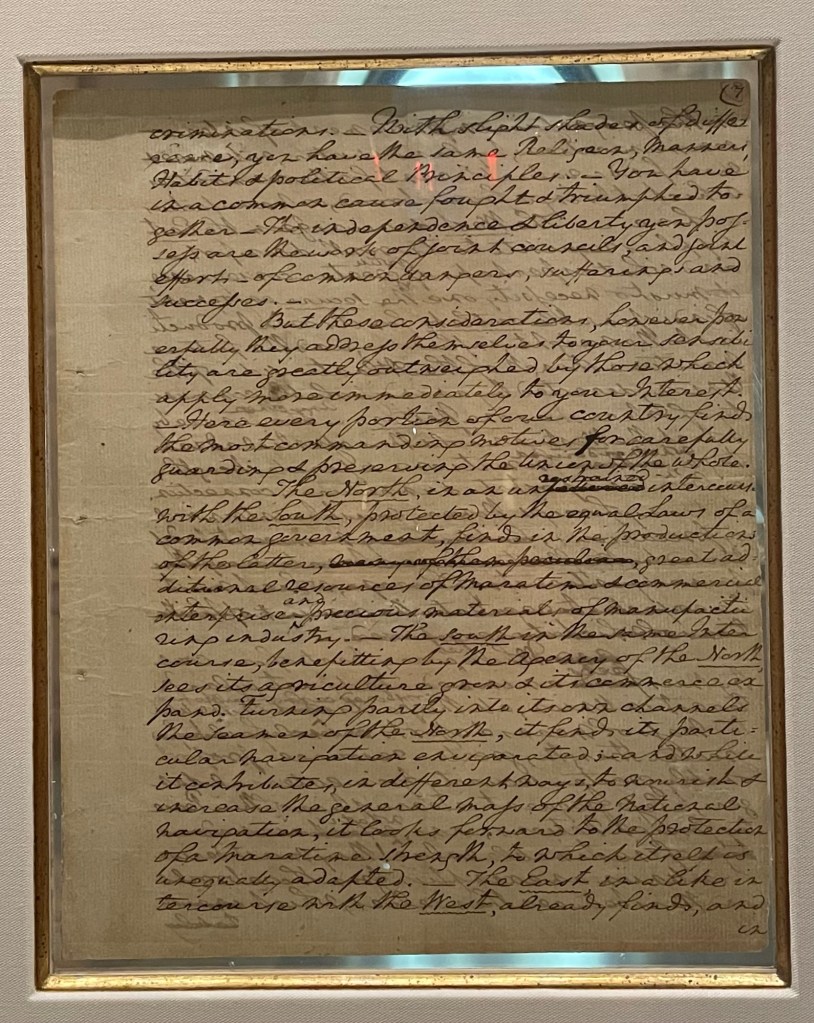 7
criminations. – With slight shades of diffe
rence, you have the same Religeon, Manners,
Habits & political Principles. – You have
in a common cause fought & triumphed to-
gether – The independence & liberty you pos-
sess are the work of joint councils, and joint
efforts – of common dangers, sufferings and
successes. –
But these considerations, however pow
erfully they address themselves to your sensibi
lity are greatly outweighed by those which
apply more immediately to your Interest. –
Here every portion of our country finds
the most commanding motives for carefully
guarding & preserving the Union of the whole.
restrained
The North, in an un intercourse
with the South, protected by the equal Laws of a
common government, finds in the productions
of the latter, many of them peculiar, great ad-
ditional resources of Maratime & commercial
enterprise and precious materials of manufactu
ring industry. – The South in the same Inter
course, benefitting by the Agency of the North,
sees its agriculture grow & its commerce ex
pand. Turning partly into its own channels
the seamen of the North, it finds its parti-
cular navigation envigorated; – and while
it contributes, in different ways, to nourish &
increase the general mass of the National
navigation, it looks forward to the protection
of a Maratime strength, to which itself is
unequally adapted. – The East, in a like in
tercourse with the West, already finds, and
in